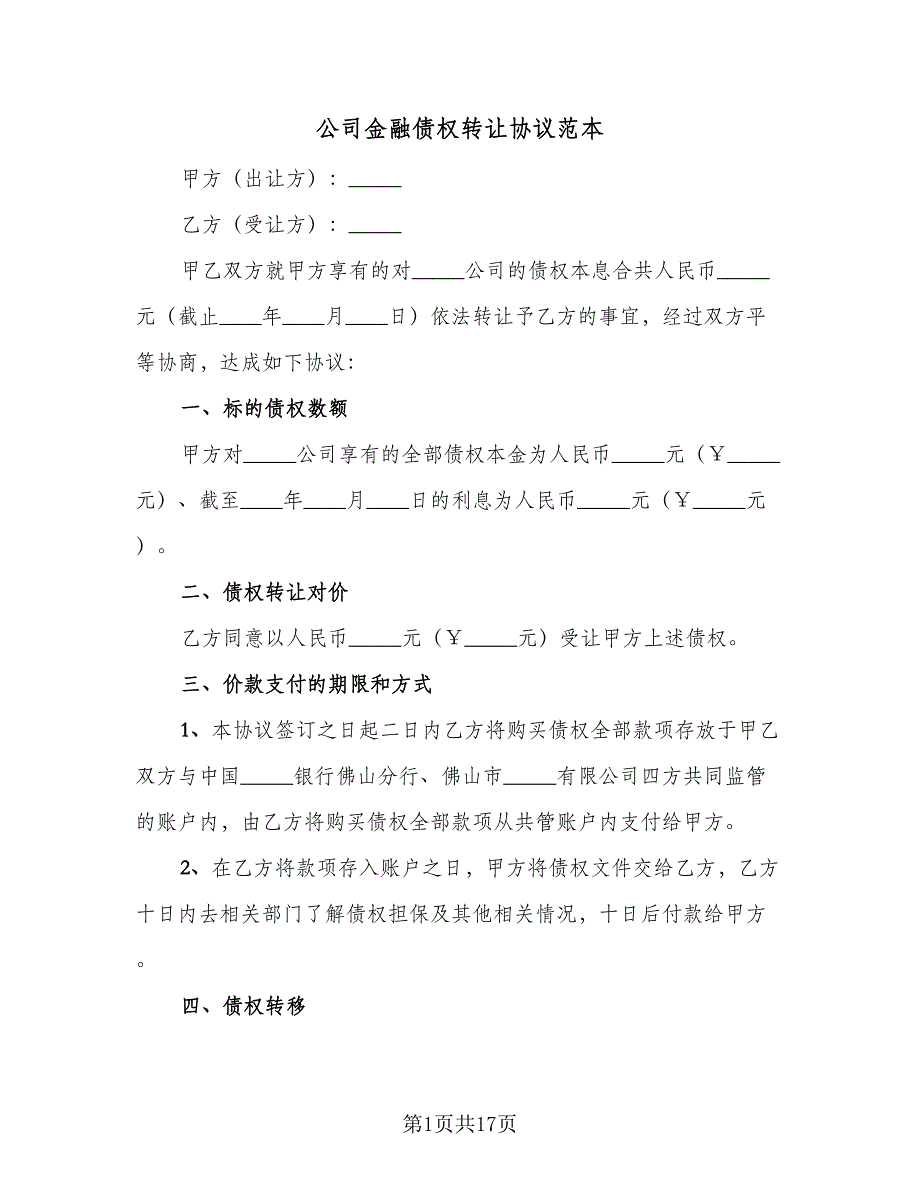 公司金融债权转让协议范本
甲方（出让方）：_____
乙方（受让方）：_____
甲乙双方就甲方享有的对_____公司的债权本息合共人民币_____
元（截止____年____月____日）依法转让予乙方的事宜，经过双方平
等协商，达成如下协议：
一、标的债权数额
甲方对_____公司享有的全部债权本金为人民币_____元（￥_____
元）、截至____年____月____日的利息为人民币_____元（￥_____元
）。
二、债权转让对价
乙方同意以人民币_____元（￥_____元）受让甲方上述债权。
三、价款支付的期限和方式
1、本协议签订之日起二日内乙方将购买债权全部款项存放于甲乙
双方与中国_____银行佛山分行、佛山市_____有限公司四方共同监管
的账户内，由乙方将购买债权全部款项从共管账户内支付给甲方。
2、在乙方将款项存入账户之日，甲方将债权文件交给乙方，乙方
十日内去相关部门了解债权担保及其他相关情况，十日后付款给甲方
。
四、债权转移
第1页共17页